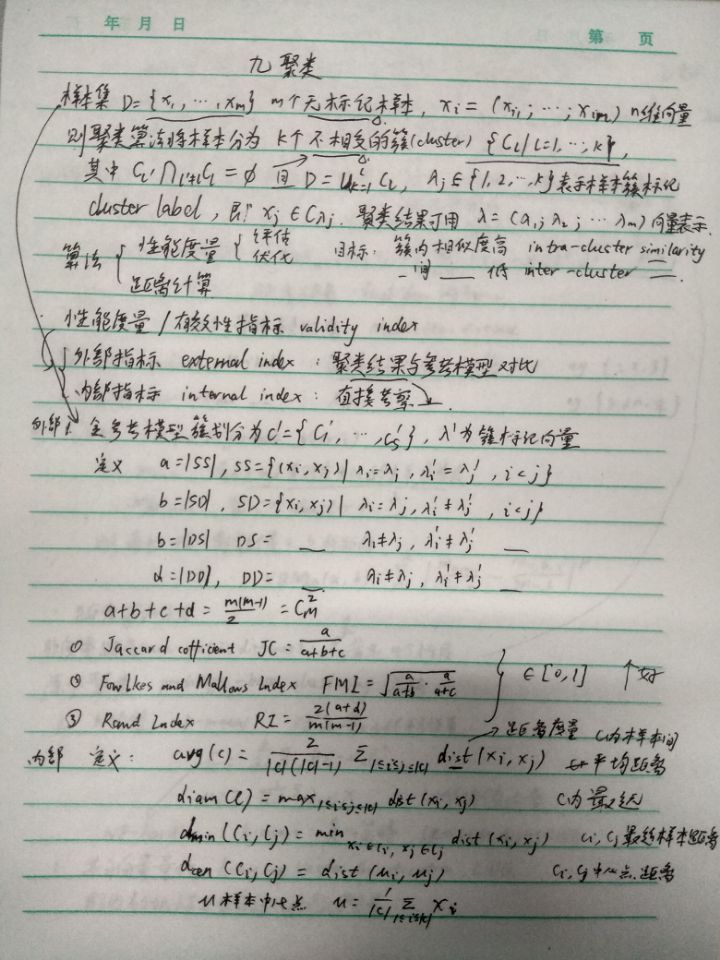 年 月 日 第 页
九 聚类
样本集 D={x₁, ⋯, xm} m个无标记样本, xi = (xi₁; ⋯; xim) n维向量
则聚类算法将样本分为 k个不相交的簇(cluster) {Cl | l=1, ⋯, k},
其中 Cl' ∩l'≠l Cl = ∅ 且 D = ∪ Cl, λj ∈ {1, 2, ⋯, k} 表示样本簇标记
cluster label, 即 xj ∈ Cλj. 聚类结果可用 λ = (λ₁; λ₂; ⋯ λm) 向量表示.
算法 { 性能度量 { 评估 优化 目标: 簇内相似度高 intra-cluster similarity
距离计算 —间 —— 低 inter-cluster ——.
性能度量 / 有效性指标 validity index
外部指标 external index : 聚类结果与参考模型对比
内部指标 internal index : 直接考察 ~.
外部: 参考模型簇划分为 C'={C₁', ⋯, Cs'}, λ'为簇标记向量
定义 a=|SS|, SS={(xi, xj) | λi=λj, λi'=λj', i<j}
b=|SD|, SD={xi, xj) | λi=λj, λi'≠λj', i<j}
b=|DS| DS= — λi≠λj, λi'≠λj' —
d=|DD|, DD= λi≠λj, λi'≠λj' —
a+b+c+d = m(m-1)/2 = C²m
① Jaccard cofficient JC = a/(a+b+c)
② Fowlkes and Mallows Index FMI = √(a/(a+b) · a/(a+c)) ∈ [0,1] ↑好
③ Rand Index RI = 2(a+d)/m(m-1)
→ 距离度量
内部 定义: avg(c) = 2/|c|(|c|-1) Σ1≤i≤j≤|c| dist(xi, xj) C内样本间平均距离
diam(C) = max1≤i≤j≤|c| dist(xi, xj) C内最远
dmin(Ci, Cj) = min xi∈Ci, xj∈Cj dist(xi, xj) Ci, Cj 最近样本距离
dcen(Ci, Cj) = dist(μi, μj) Ci, Cj 中心点距离
μ样本中心点 μ = 1/|c| Σ1≤i≤|c| xi